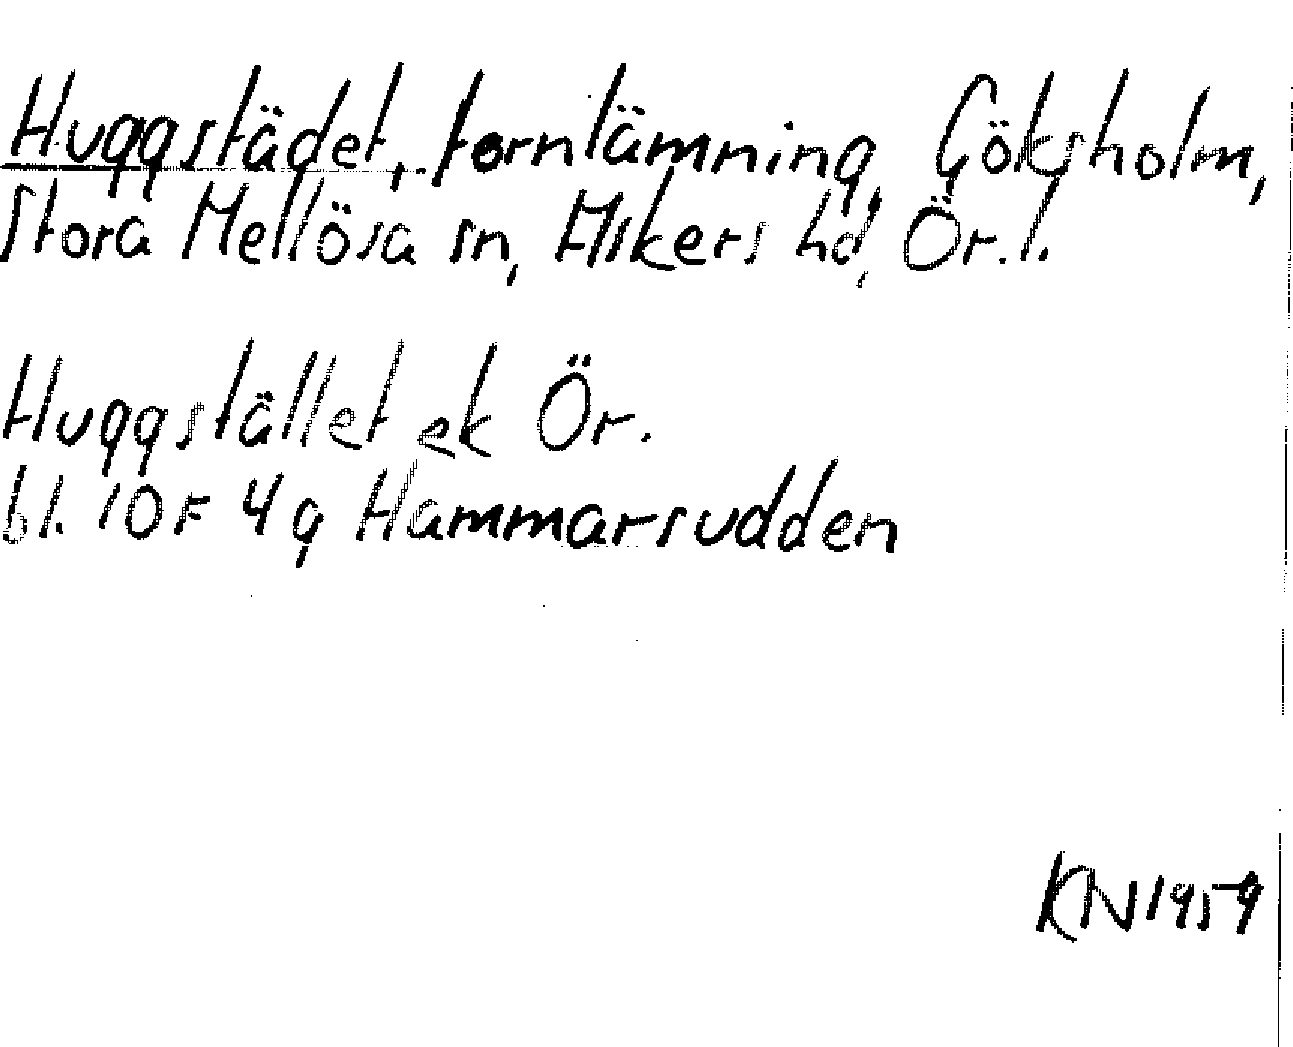 Huggstädet, fornlämning, Göksholm,
Stora Mellösa sn, Askers hd, Ör. l.
Huggstället ek Ör.
bl. 10F 4g Hammarsudden
KN 1959